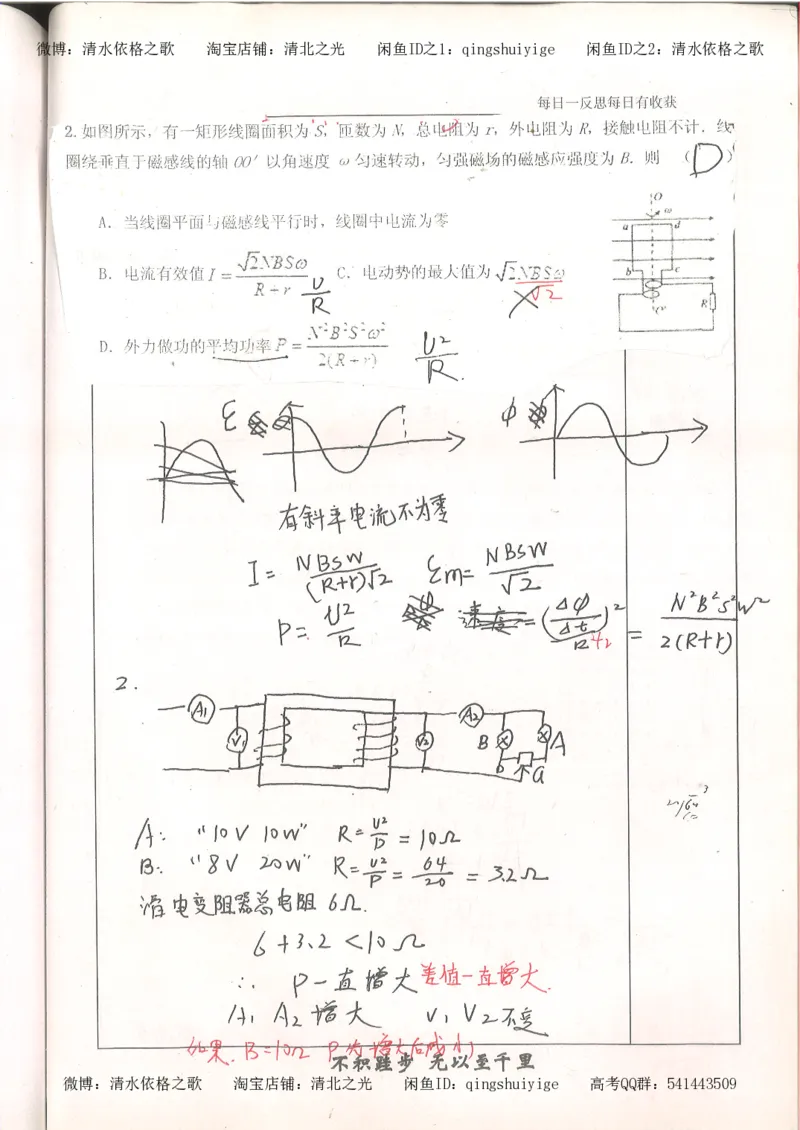 微博：清水依格之歌 淘宝店铺：清北之光 闲鱼ID之1：qingshuiyige 闲鱼ID之2：清水依格之歌
每日一反思每日有收获
2.如图所示，有一矩形线圈面积为 S，匝数为 N，总电阻为 r，外电阻为 R，接触电阻不计．线
圈绕垂直于磁感线的轴 OO′ 以角速度 ω 匀速转动，匀强磁场的磁感应强度为 B．则 （D）
A．当线圈平面与磁感线平行时，线圈中电流为零
B．电流有效值 I = √2NBSω/(R+r) U/R C．电动势的最大值为 √2NBSω √2
D．外力做功的平均功率 P = N²B²S²ω²/2(R+r) U²/R.
O
ω
a d
b c
R
O′
ε φ
有斜率电流不为零
I = NBSW/(R+r)√2 εm = NBSW/√2
P = U²/R = (Δφ/Δt)²/R = N²B²S²W²/2(R+r)
2.
A1 V1 V2 A2 B A
b a
A: "10V 10W" R = U²/P = 10Ω
B: "8V 20W" R = U²/P = 64/20 = 3.2Ω
滑电变阻器总电阻 6Ω.
6+3.2 <10Ω
∴ P一直增大 差值一直增大.
A1 A2 增大 V1 V2不变
如果. B=10Ω P为增大后减小
不积跬步 无以至千里
微博：清水依格之歌 淘宝店铺：清北之光 闲鱼ID：qingshuiyige 高考QQ群：541443509